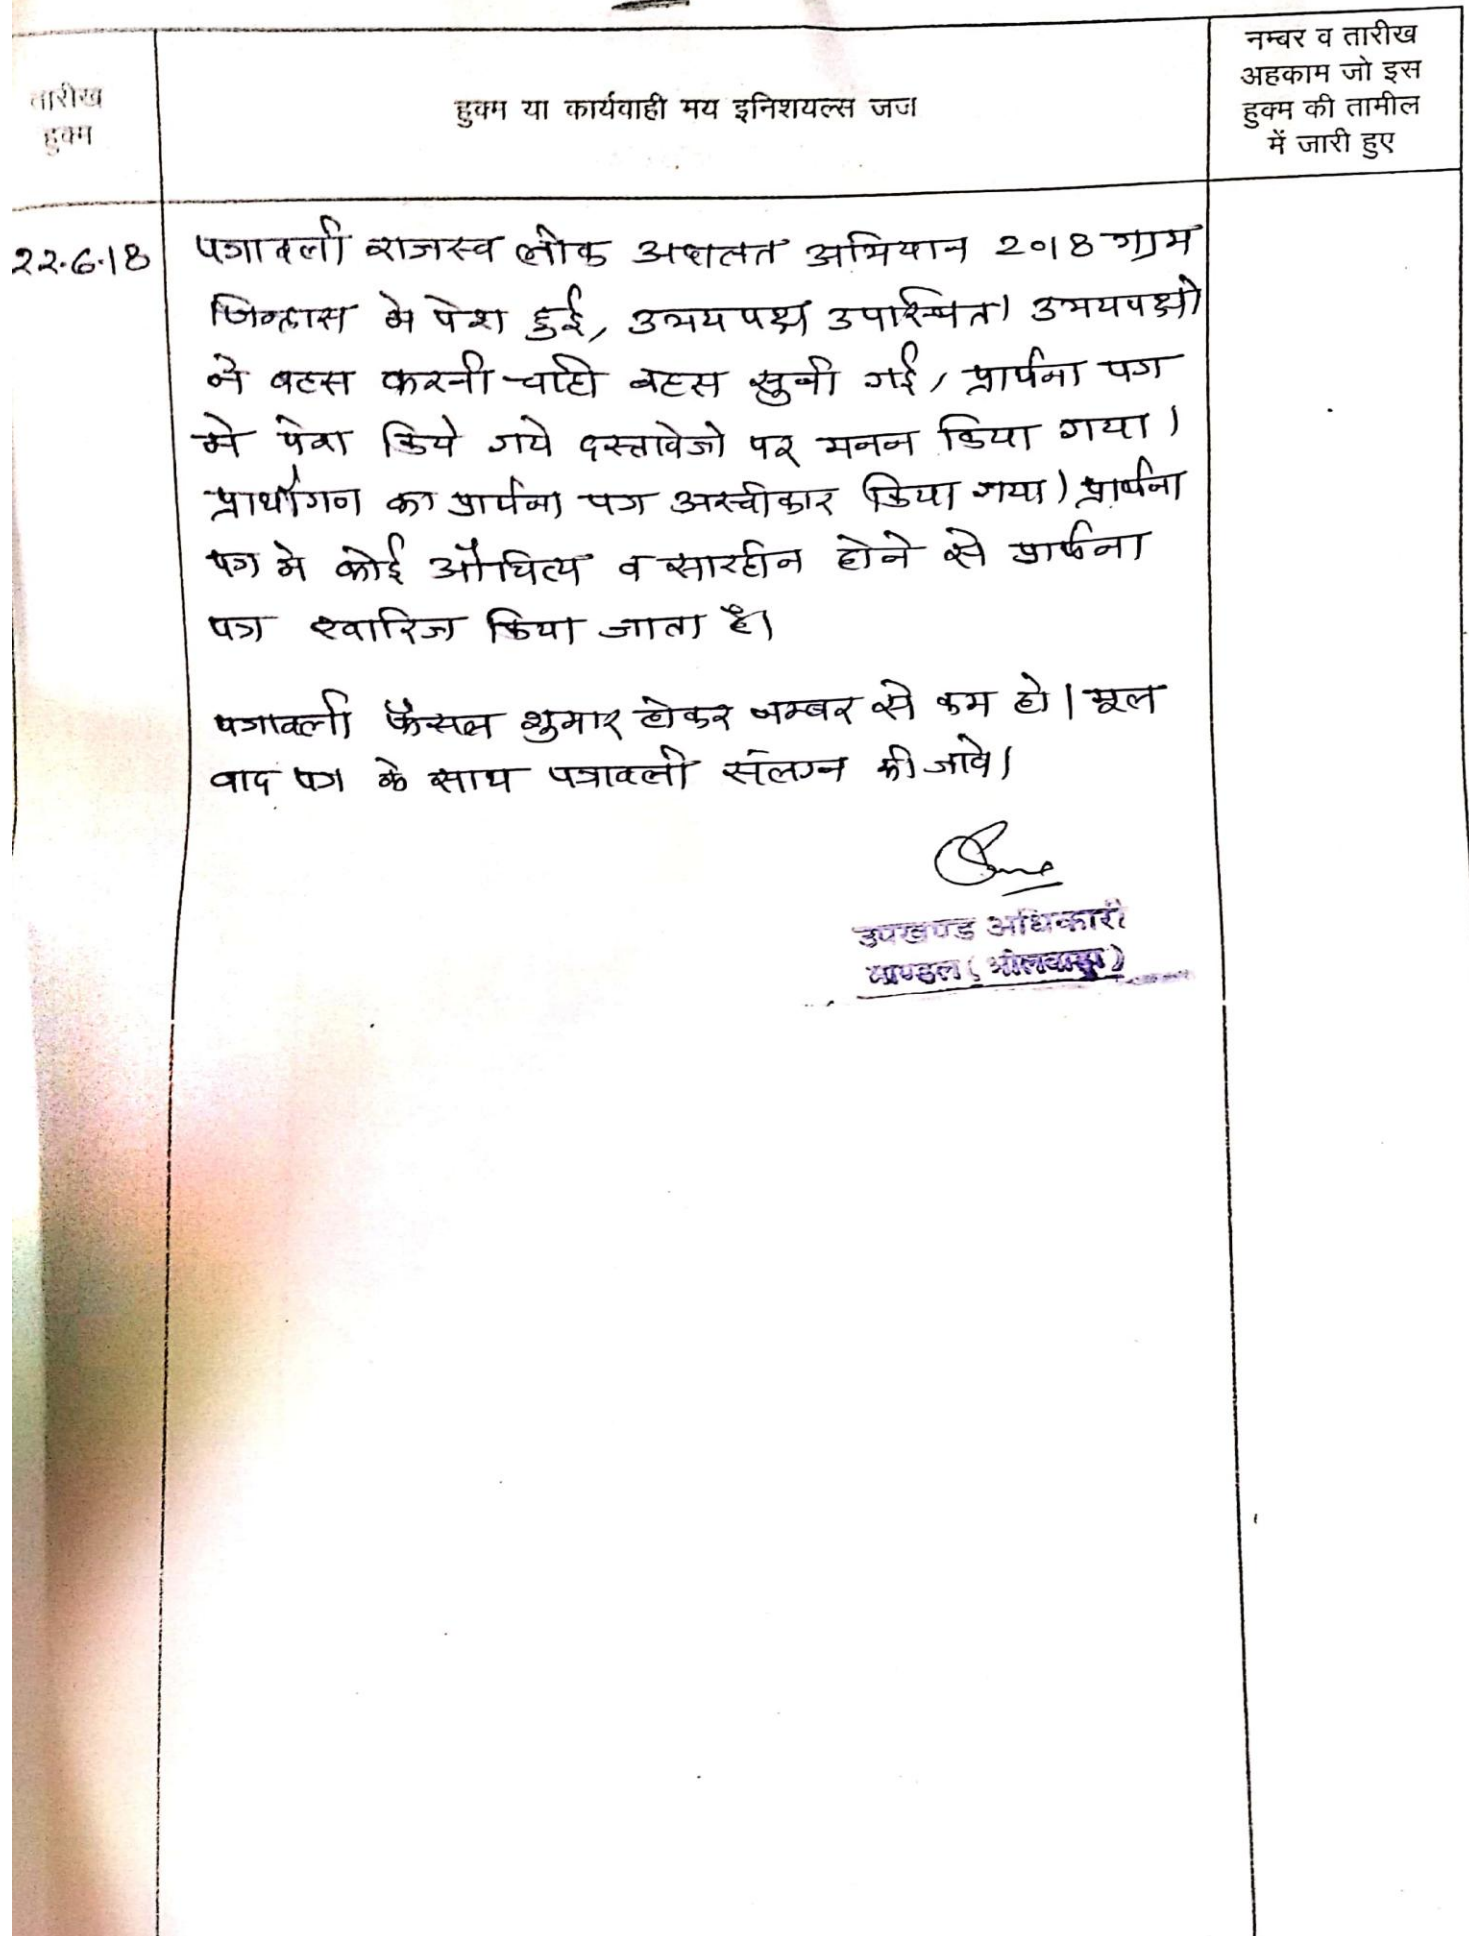 तारीख
हुक्म
हुक्म या कार्यवाही मय इनिशयल्स जज
नम्बर व तारीख
अहकाम जो इस
हुक्म की तामील
में जारी हुए
22.6.18
पत्रावली राजस्व लोक अदालत अभियान 2018 ग्राम
में पेश हुई, उभयपक्ष उपस्थित। उभयपक्षो
ने बहस करनी चाही बहस सुनी गई, प्रार्थना पत्र
मे पेश किये गये दस्तावेजो पर मनन किया गया।
प्रार्थीगन का प्रार्थना पत्र अस्वीकार किया गया। प्रार्थना
पत्र मे कोई औचित्य व सारहीन होने से प्रार्थना
पत्र खारिज किया जाता है।
पत्रावली फैसल शुमार होकर नम्बर से कम हो। मूल
वाद पत्र के साथ पत्रावली संलग्न की जावे।
उपखण्ड अधिकारी
माण्डल (भीलवाड़ा)